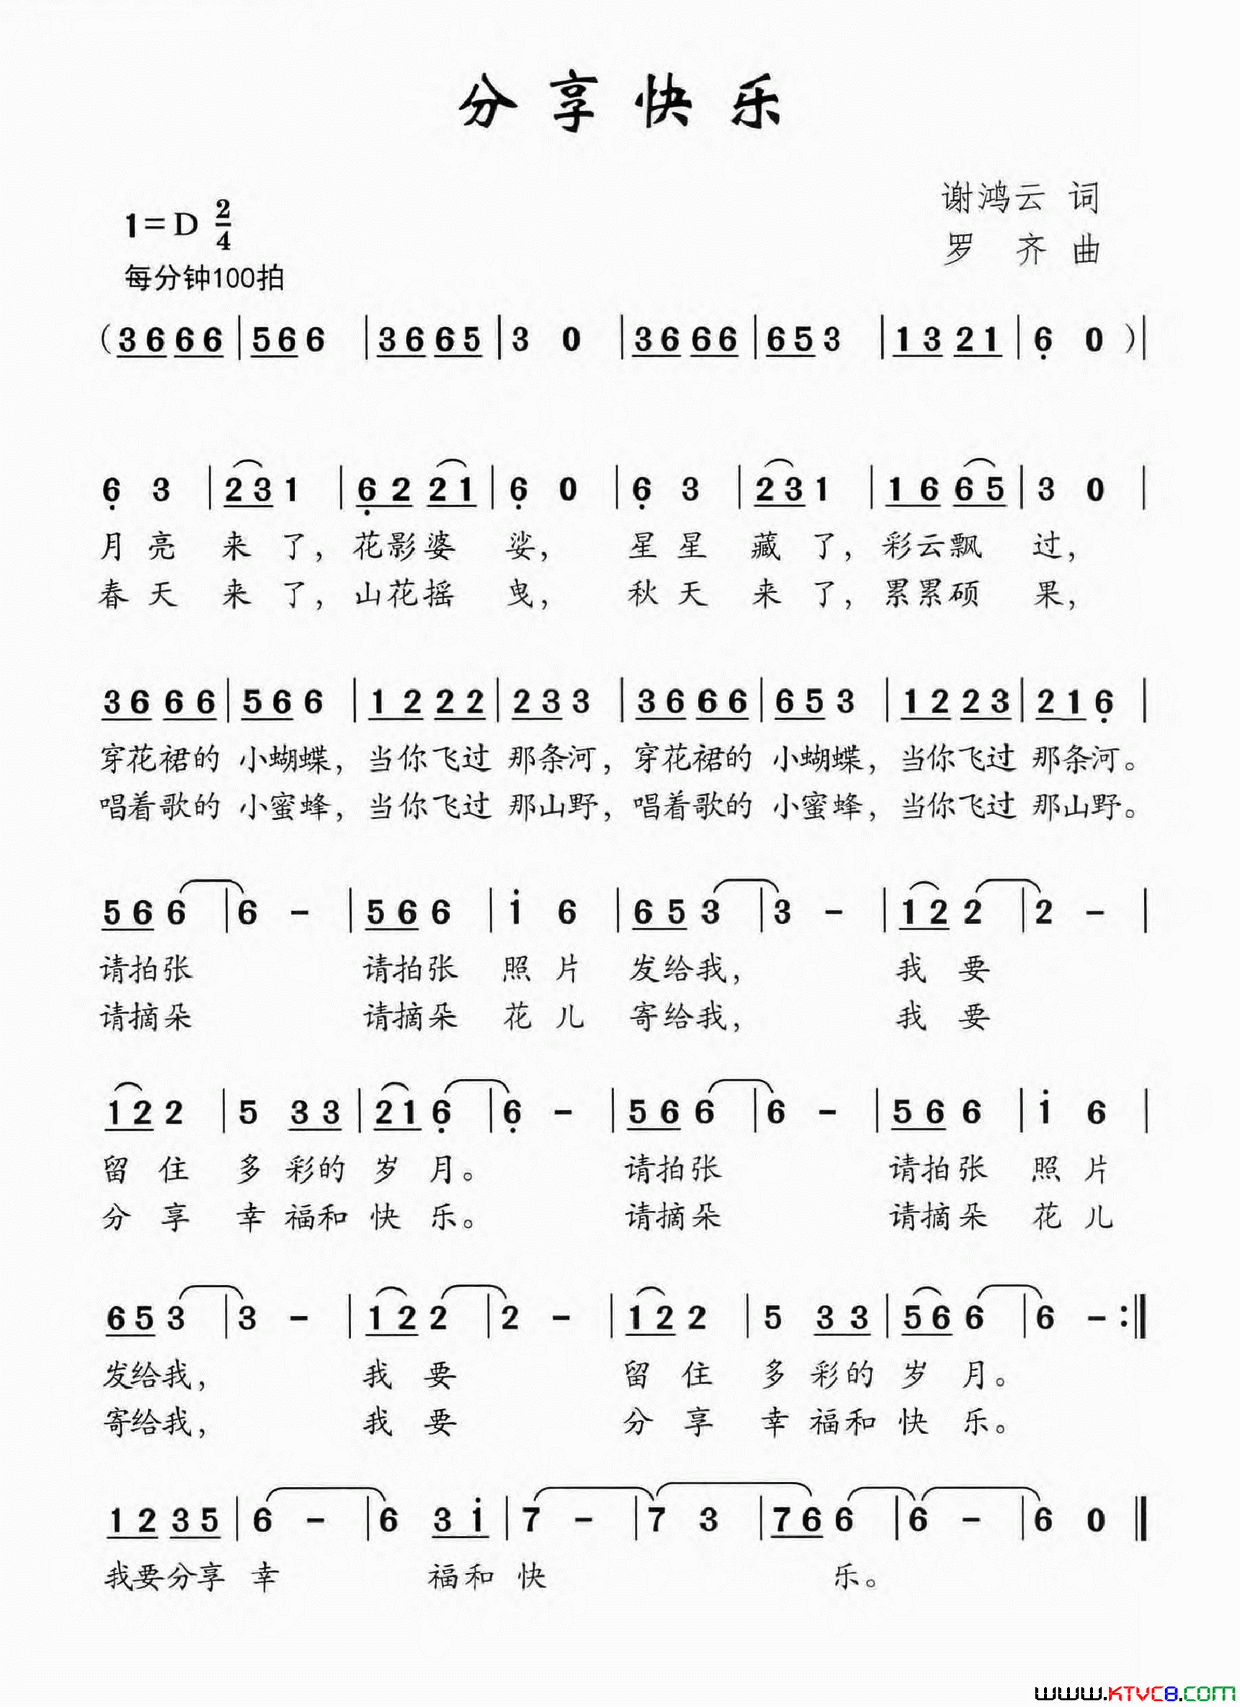 分享快乐
谢鸿云 词
1=D 2/4
罗 齐 曲
每分钟100拍
(3666|566 |3665|3 0 |3666|653 |1321|6̣ 0 )|
6̣ 3 |231 |6̣221|6̣ 0 |6̣ 3 |231 |1665|3 0 |
月亮 来了,花影婆 娑, 星星 藏了,彩云飘 过,
春天 来了,山花摇 曳, 秋天 来了,累累硕 果,
3666|566 |1222|233 |3666|653 |1223|216̣ |
穿花裙的 小蝴蝶,当你飞过 那条河,穿花裙的 小蝴蝶,当你飞过 那条河。
唱着歌的 小蜜蜂,当你飞过 那山野,唱着歌的 小蜜蜂,当你飞过 那山野。
566 |6 - |566 |1̇ 6 |653 |3 - |122 |2 - |
请拍张 请拍张 照片 发给我, 我要
请摘朵 请摘朵 花儿 寄给我, 我要
122 |5 33|216̣ |6̣ - |566 |6 - |566 |1̇ 6 |
留住 多彩的 岁月。 请拍张 请拍张 照片
分享 幸福和 快乐。 请摘朵 请摘朵 花儿
653 |3 - |122 |2 - |122 |5 33|566 |6 - :‖
发给我, 我要 留住 多彩的 岁月。
寄给我, 我要 分享 幸福和 快乐。
1235|6 - |6 31̇|7 - |7 3 |766 |6 - |6 0 ‖
我要分享 幸 福和 快 乐。
www.KTVC8.com